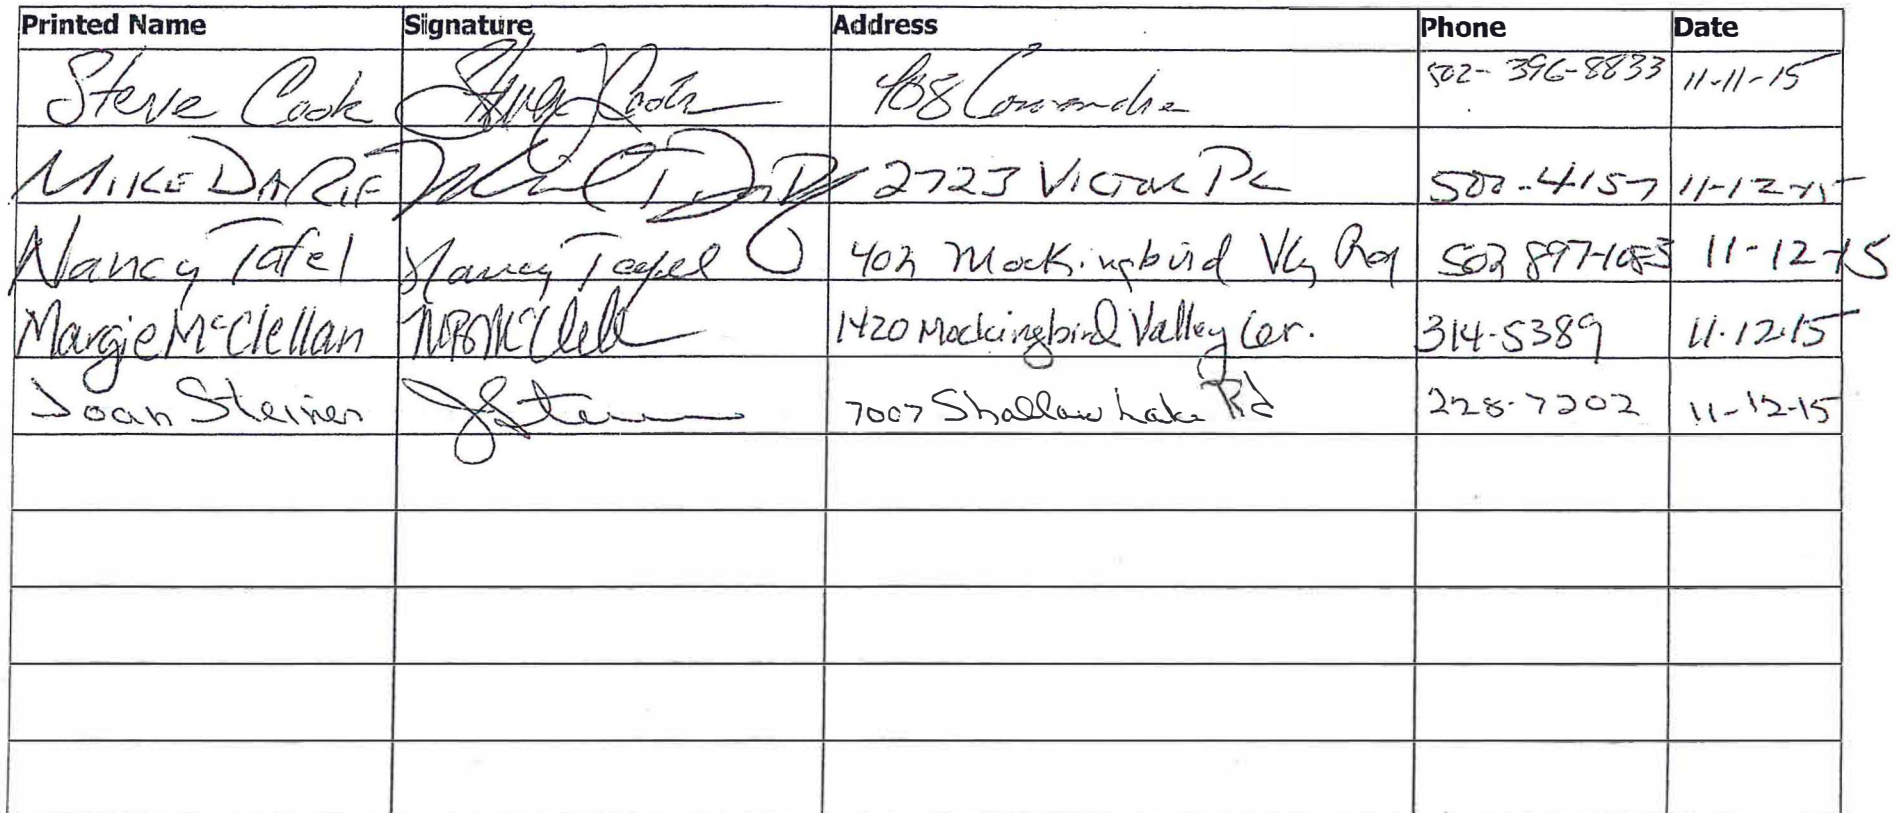 Printed Name Signature Address Phone Date
Steve Cook Steve Cook 408 Comanche 502-396-8833 11-11-15
MIKE DARIF 2723 VICTOR PL 502-4157 11-12-15
Nancy Tafel Nancy Tafel 402 Mockingbird Vly Rd 502 897-1083 11-12-15
Margie McClellan 1420 Mockingbird Valley Cor. 314-5389 11.12.15
Joan Steiner 7007 Shallow Lake Rd 228-7202 11-12-15